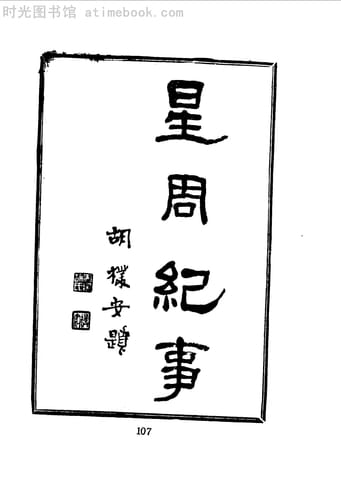 时光图书馆 - atimebook.com
星周紀事
胡樸安題
107